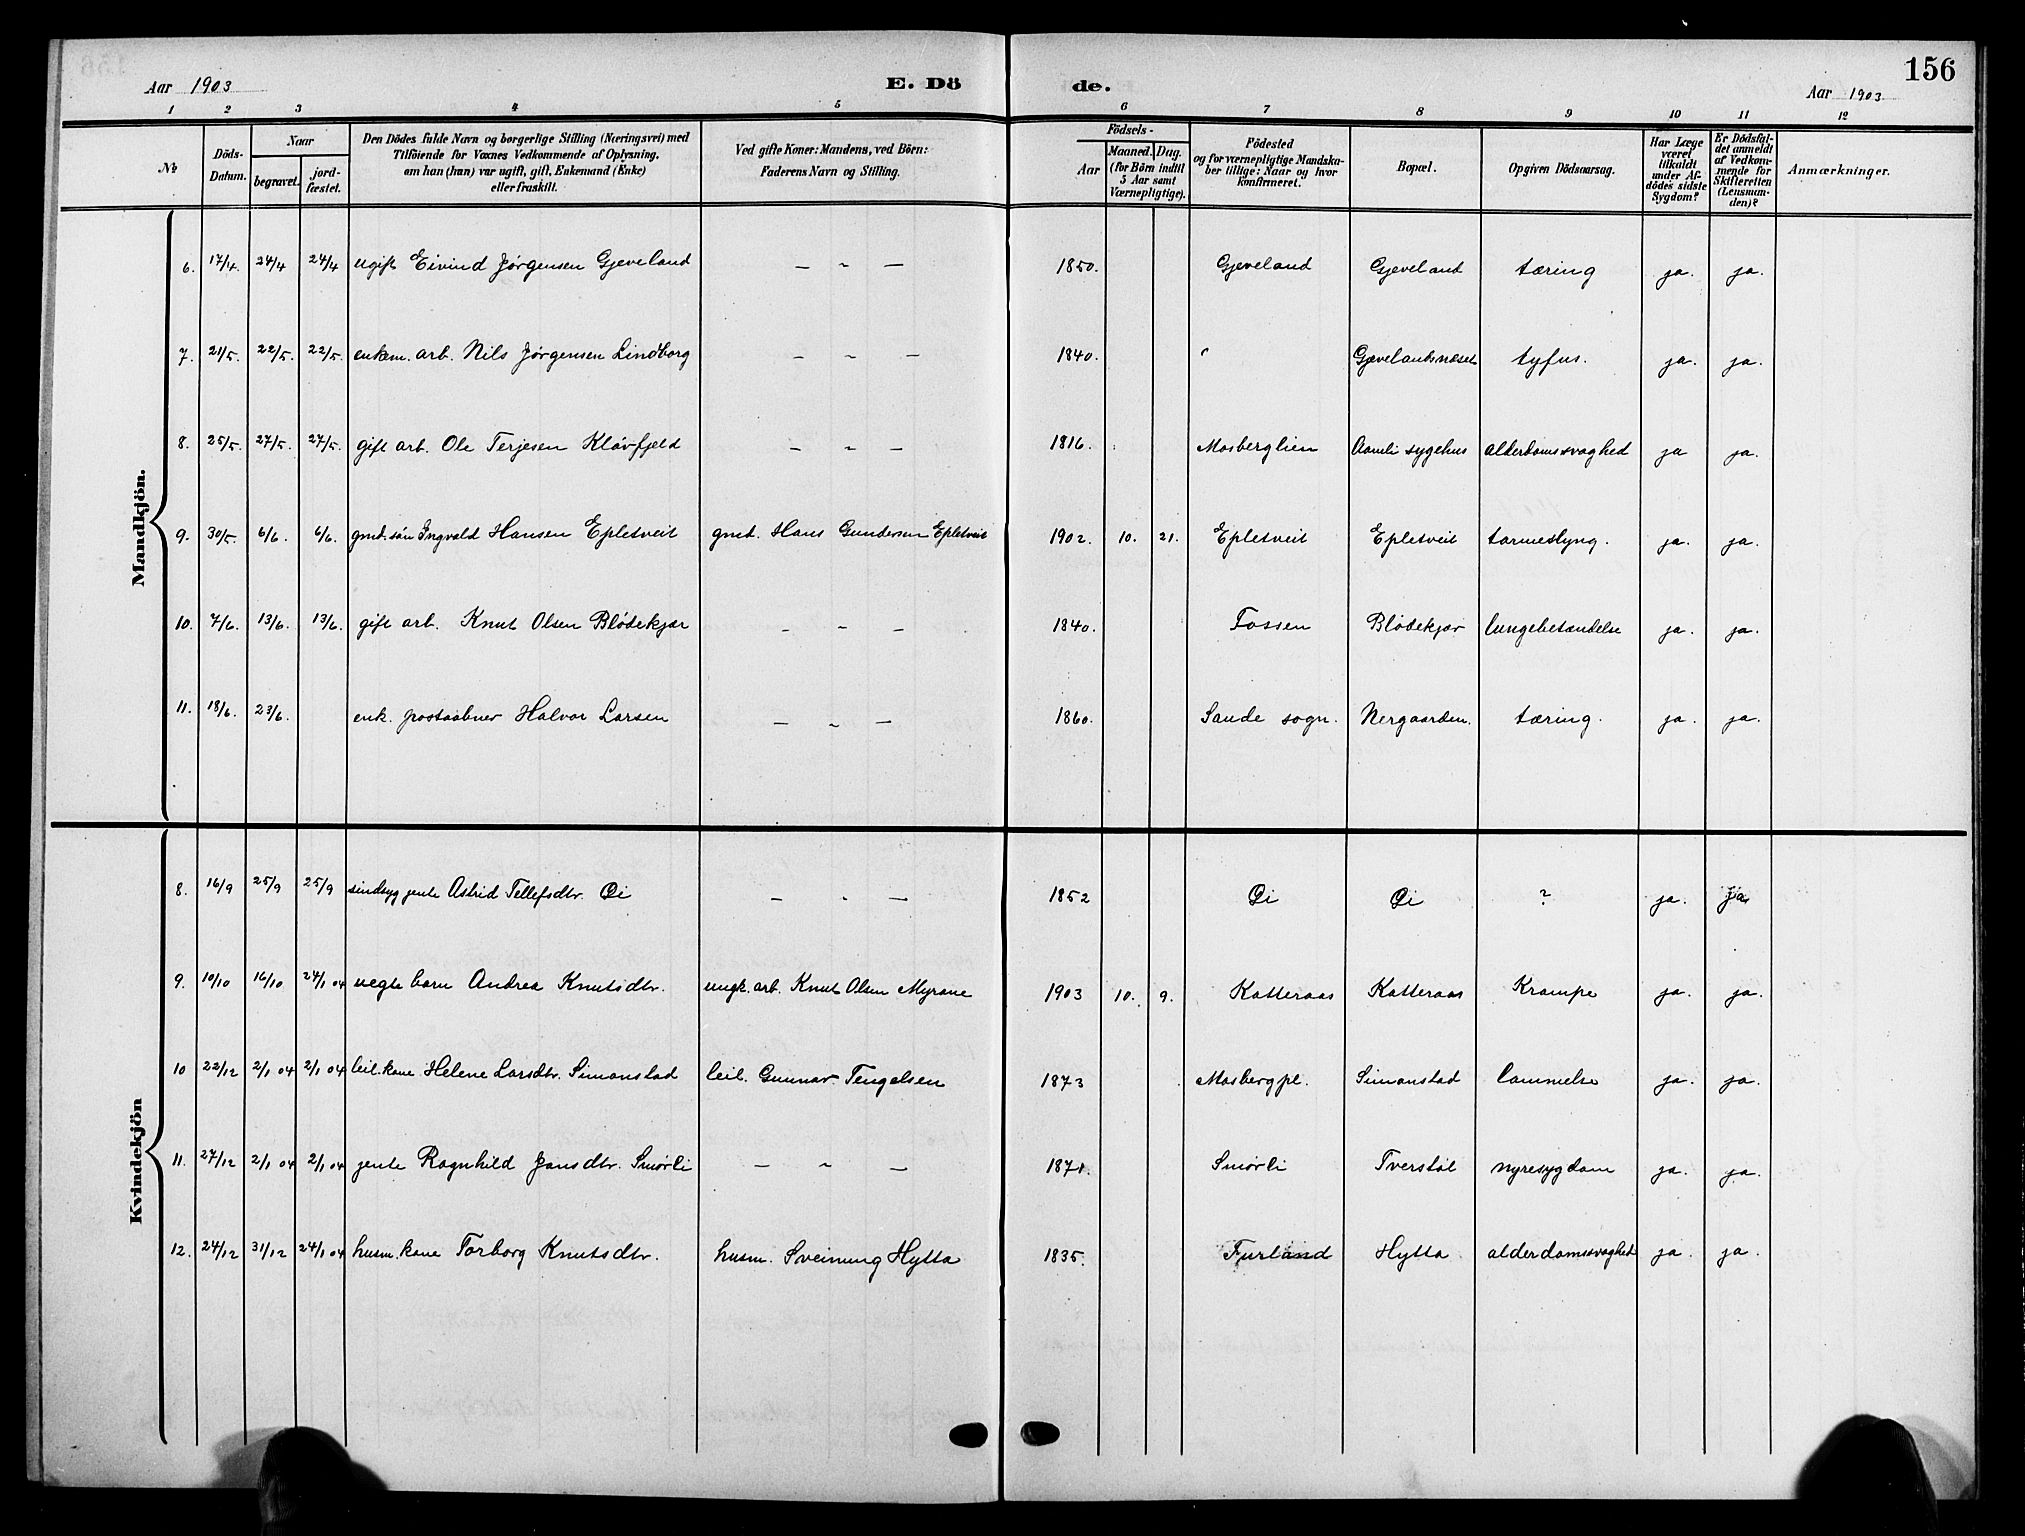 156
Aar 1903 E. Dö de. Aar 1903
1 2 3 4 5 6 7 8 9 10 11 12
№
Döds-Datum.
Naar
begravet.
jordfæstet.
Den Dödes fulde Navn og borgerlige Stilling (Næringsvei) med
Tilföiende for Voxnes Vedkommende af Oplysning,
om han (hun) var ugift, gift, Enkemand (Enke)
eller fraskilt.
Ved gifte Koner: Mandens, ved Börn:
Faderens Navn og Stilling.
Födsels-
Aar
Maaned. Dag.
(for Börn indtil
5 Aar samt
Værnepligtige).
Födested
og for værnepligtige Mandska-
ber tillige: Naar og hvor
konfirmeret.
Bopæl.
Opgiven Dödsaarsag.
Har Læge
været
tilkaldt
under Af-
dödes sidste
Sygdom?
Er Dödsfal-
det anmeldt
af Vedkom-
mende for
Skifteretten
(Lensman-
den)?
Anmærkninger.
Mandkjön.
6. 17/4. 24/4 24/4 ugift Eivind Jørgensen Gjeveland — " — 1850. Gjeveland Gjeveland tæring ja. ja.
7. 21/5. 22/5. 22/5. enkem. arb. Nils Jørgensen Lindborg — " — 1840. " Gjevelandsnæset tyfus. ja. ja.
8. 25/5. 27/5. 27/5. gift arb. Ole Terjesen Kløvfjeld — " — 1816. Mosberglien Aamli sygehus alderdomssvaghed ja ja.
9. 30/5. 6/6. 6/6. gmd. søn Ingvald Hansen Epletveit gmd. Hans Gundersen Epletveit 1902. 10. 21. Epletveit Epletveit tarmeslyng. ja. ja.
10. 7/6. 13/6. 13/6. gift arb. Knut Olsen Blødekjær — " — 1840. Fossen Blødekjær lungebetændelse ja. ja.
11. 18/6. 23/6. enk. postaabner Halvor Larsen — " — 1860. Saude sogn. Nergaarden. tæring. ja. ja.
Kvindekjön
8. 16/9 25/9 25/9 sindsyg jente Astrid Tellefsdtr. Øi — " — 1852 Øi Øi ? ja. ja.
9. 10/10 16/10 24/1 04 uegte barn Andrea Knutsdtr. ungk. arb. Knut Olsen Myrane 1903 10. 9. Katteraas Katteraas Krampe ja. ja.
10 22/12 2/1 04 2/1 04 leil. kone Helene Larsdtr. Simonstad leil. Gunnar Tengelsen 1873 Mosbergpl. Simonstad lammelse ja. ja.
11. 27/12 2/1 04 2/1 04 jente Ragnhild Jansdtr. Smørli — " — 1871. Smørli Tverstøl nyresygdom ja. ja.
12. 24/12 31/12 24/1 04 husm. kone Torborg Knutsdtr. husm. Sveinung Hytta 1835. Furland Hytta alderdomssvaghed ja. ja.